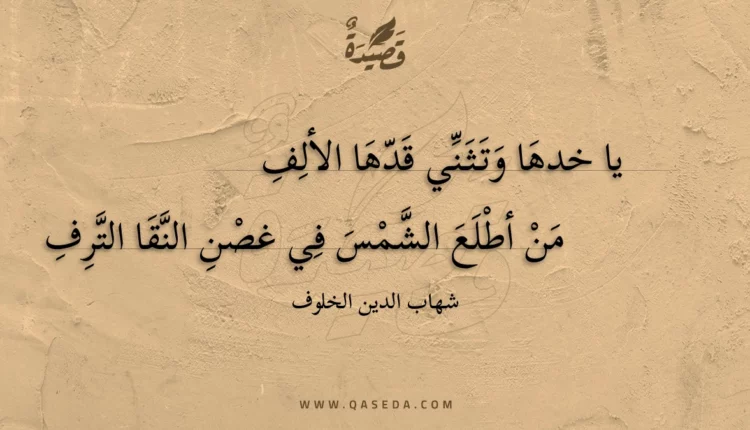 قَصِيدَةٌ
يا خدهَا وَتَثَنِّي قَدّهَا الألِفِ
مَنْ أطْلَعَ الشَّمْسَ فِي غصْنِ النَّقَا التَّرِفِ
شهاب الدين الخلوف
WWW.QASEDA.COM